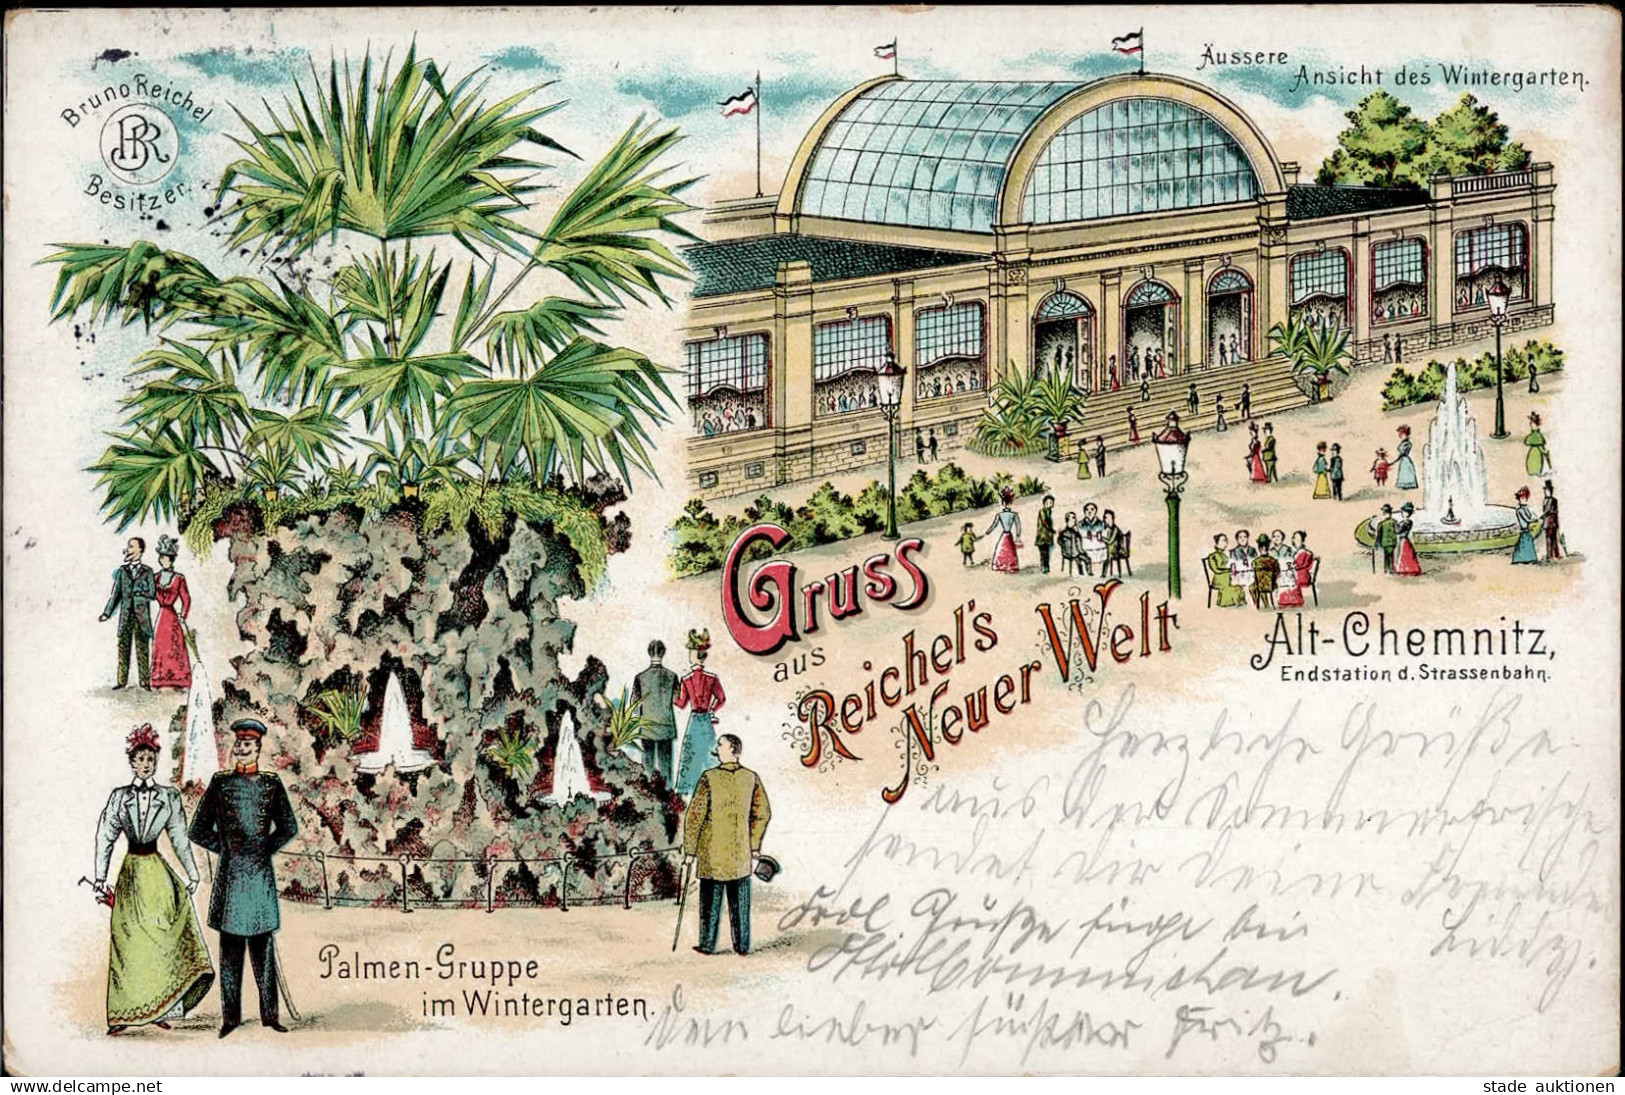 Bruno Reichel
BR
Besitzer.
Äussere
Ansicht des Wintergarten.
Gruss
aus
Reichel's
Neuer Welt
Alt-Chemnitz,
Endstation d. Strassenbahn.
Herzliche Grüße
aus der Sommerfrische
sendet Dir Deine Freundin
Liddy.
Grüße fügt bei
Dein lieber Fritz.
Palmen-Gruppe
im Wintergarten.
www.delcampe.net
stade auktionen